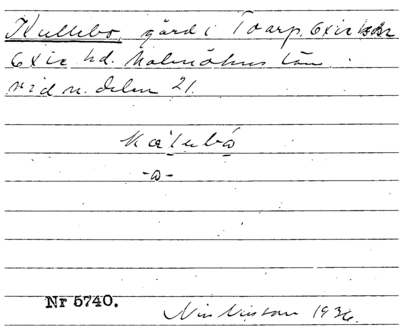 Kullebo, gård i Toarp, Oxie sn
Oxie hd. Malmöhus län
vid n. delen 21.
ka'lubå
-ω-
Nr 5740.
Nils Nilsson 1936.